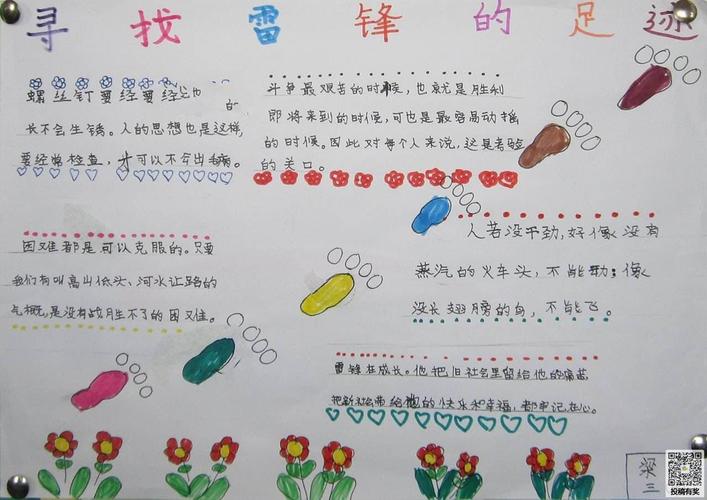 寻找雷锋的足迹
螺丝钉要经要经
长不会生锈。人的思想也是这样,
要经常检查,才可以不会出毛病。
斗争最艰苦的时候,也就是胜利
即将来到的时候,可也是最容易动摇
的时候。因此对每个人来说,这是考验
的关口。
人若没干劲,好像没有
蒸汽的火车头,不能动;像
没长翅膀的鸟,不能飞。
困难都是可以克服的。只要
我们有叫高山低头,河水让路的
气概,是没有战胜不了的困难。
雷锋在成长。他把旧社会里留给他的痛苦
把新社会带给他的快乐和幸福,都牢记在心。
三
投稿有奖